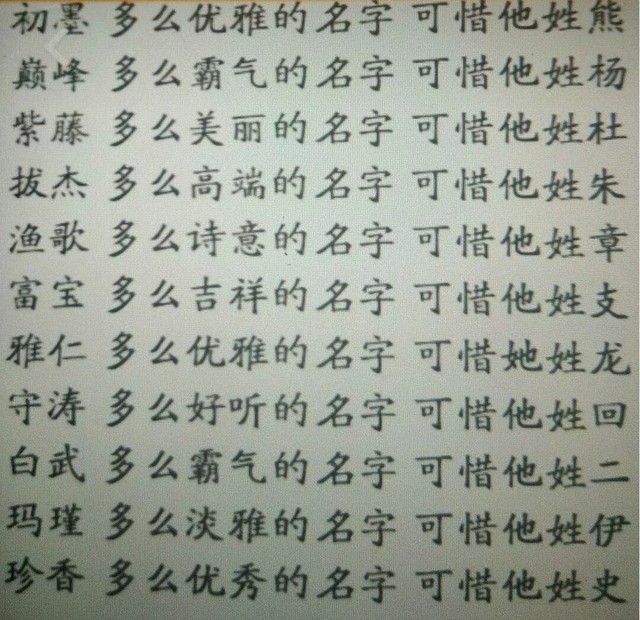 初墨 多么优雅的名字 可惜他姓熊
巅峰 多么霸气的名字 可惜他姓杨
紫藤 多么美丽的名字 可惜他姓杜
拔杰 多么高端的名字 可惜他姓朱
渔歌 多么诗意的名字 可惜他姓章
富宝 多么吉祥的名字 可惜他姓支
雅仁 多么优雅的名字 可惜她姓龙
守涛 多么好听的名字 可惜他姓回
白武 多么霸气的名字 可惜他姓二
玛瑾 多么淡雅的名字 可惜他姓伊
珍香 多么优秀的名字 可惜他姓史